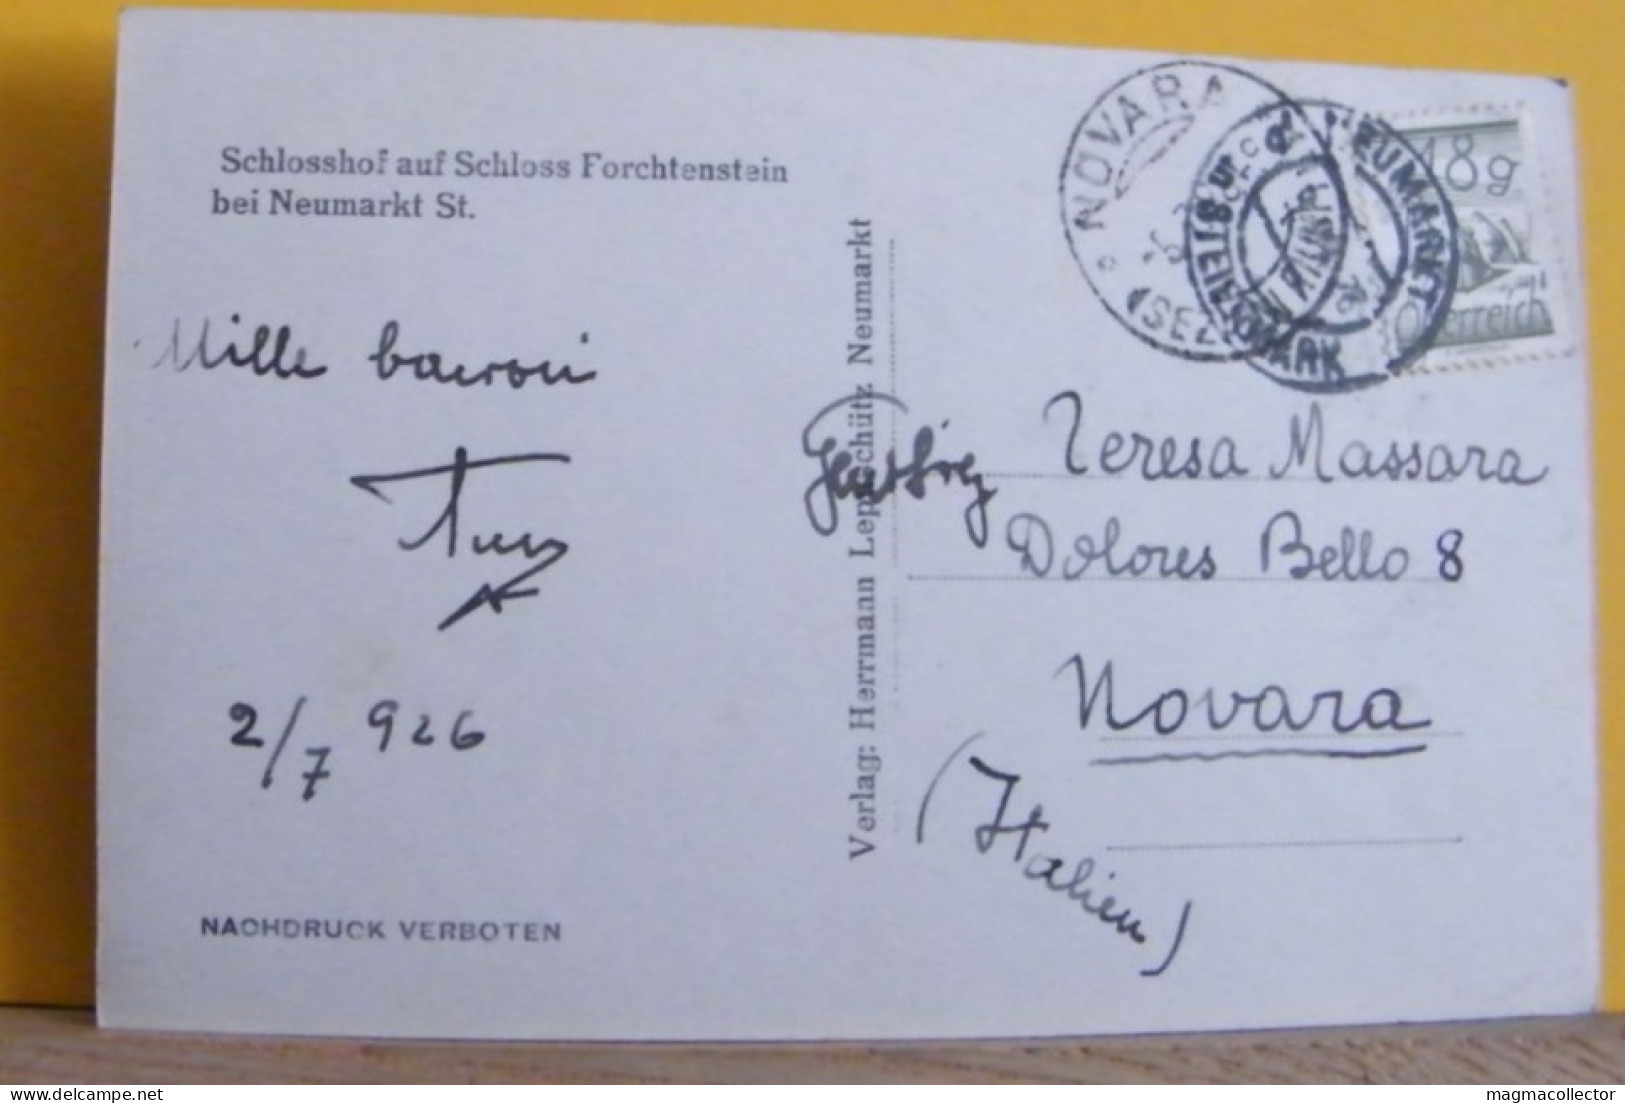 Schlosshof auf Schloss Forchtenstein
bei Neumarkt St.
Mille bacioni
2/7 926
NACHDRUCK VERBOTEN
Verlag: Herrmann Leppschütz Neumarkt
NOVARA
NEUMARKT
STEIERMARK
18g
Österreich
Teresa Massara
Dolores Bello 8
Novara
(Italien)
magmacollector